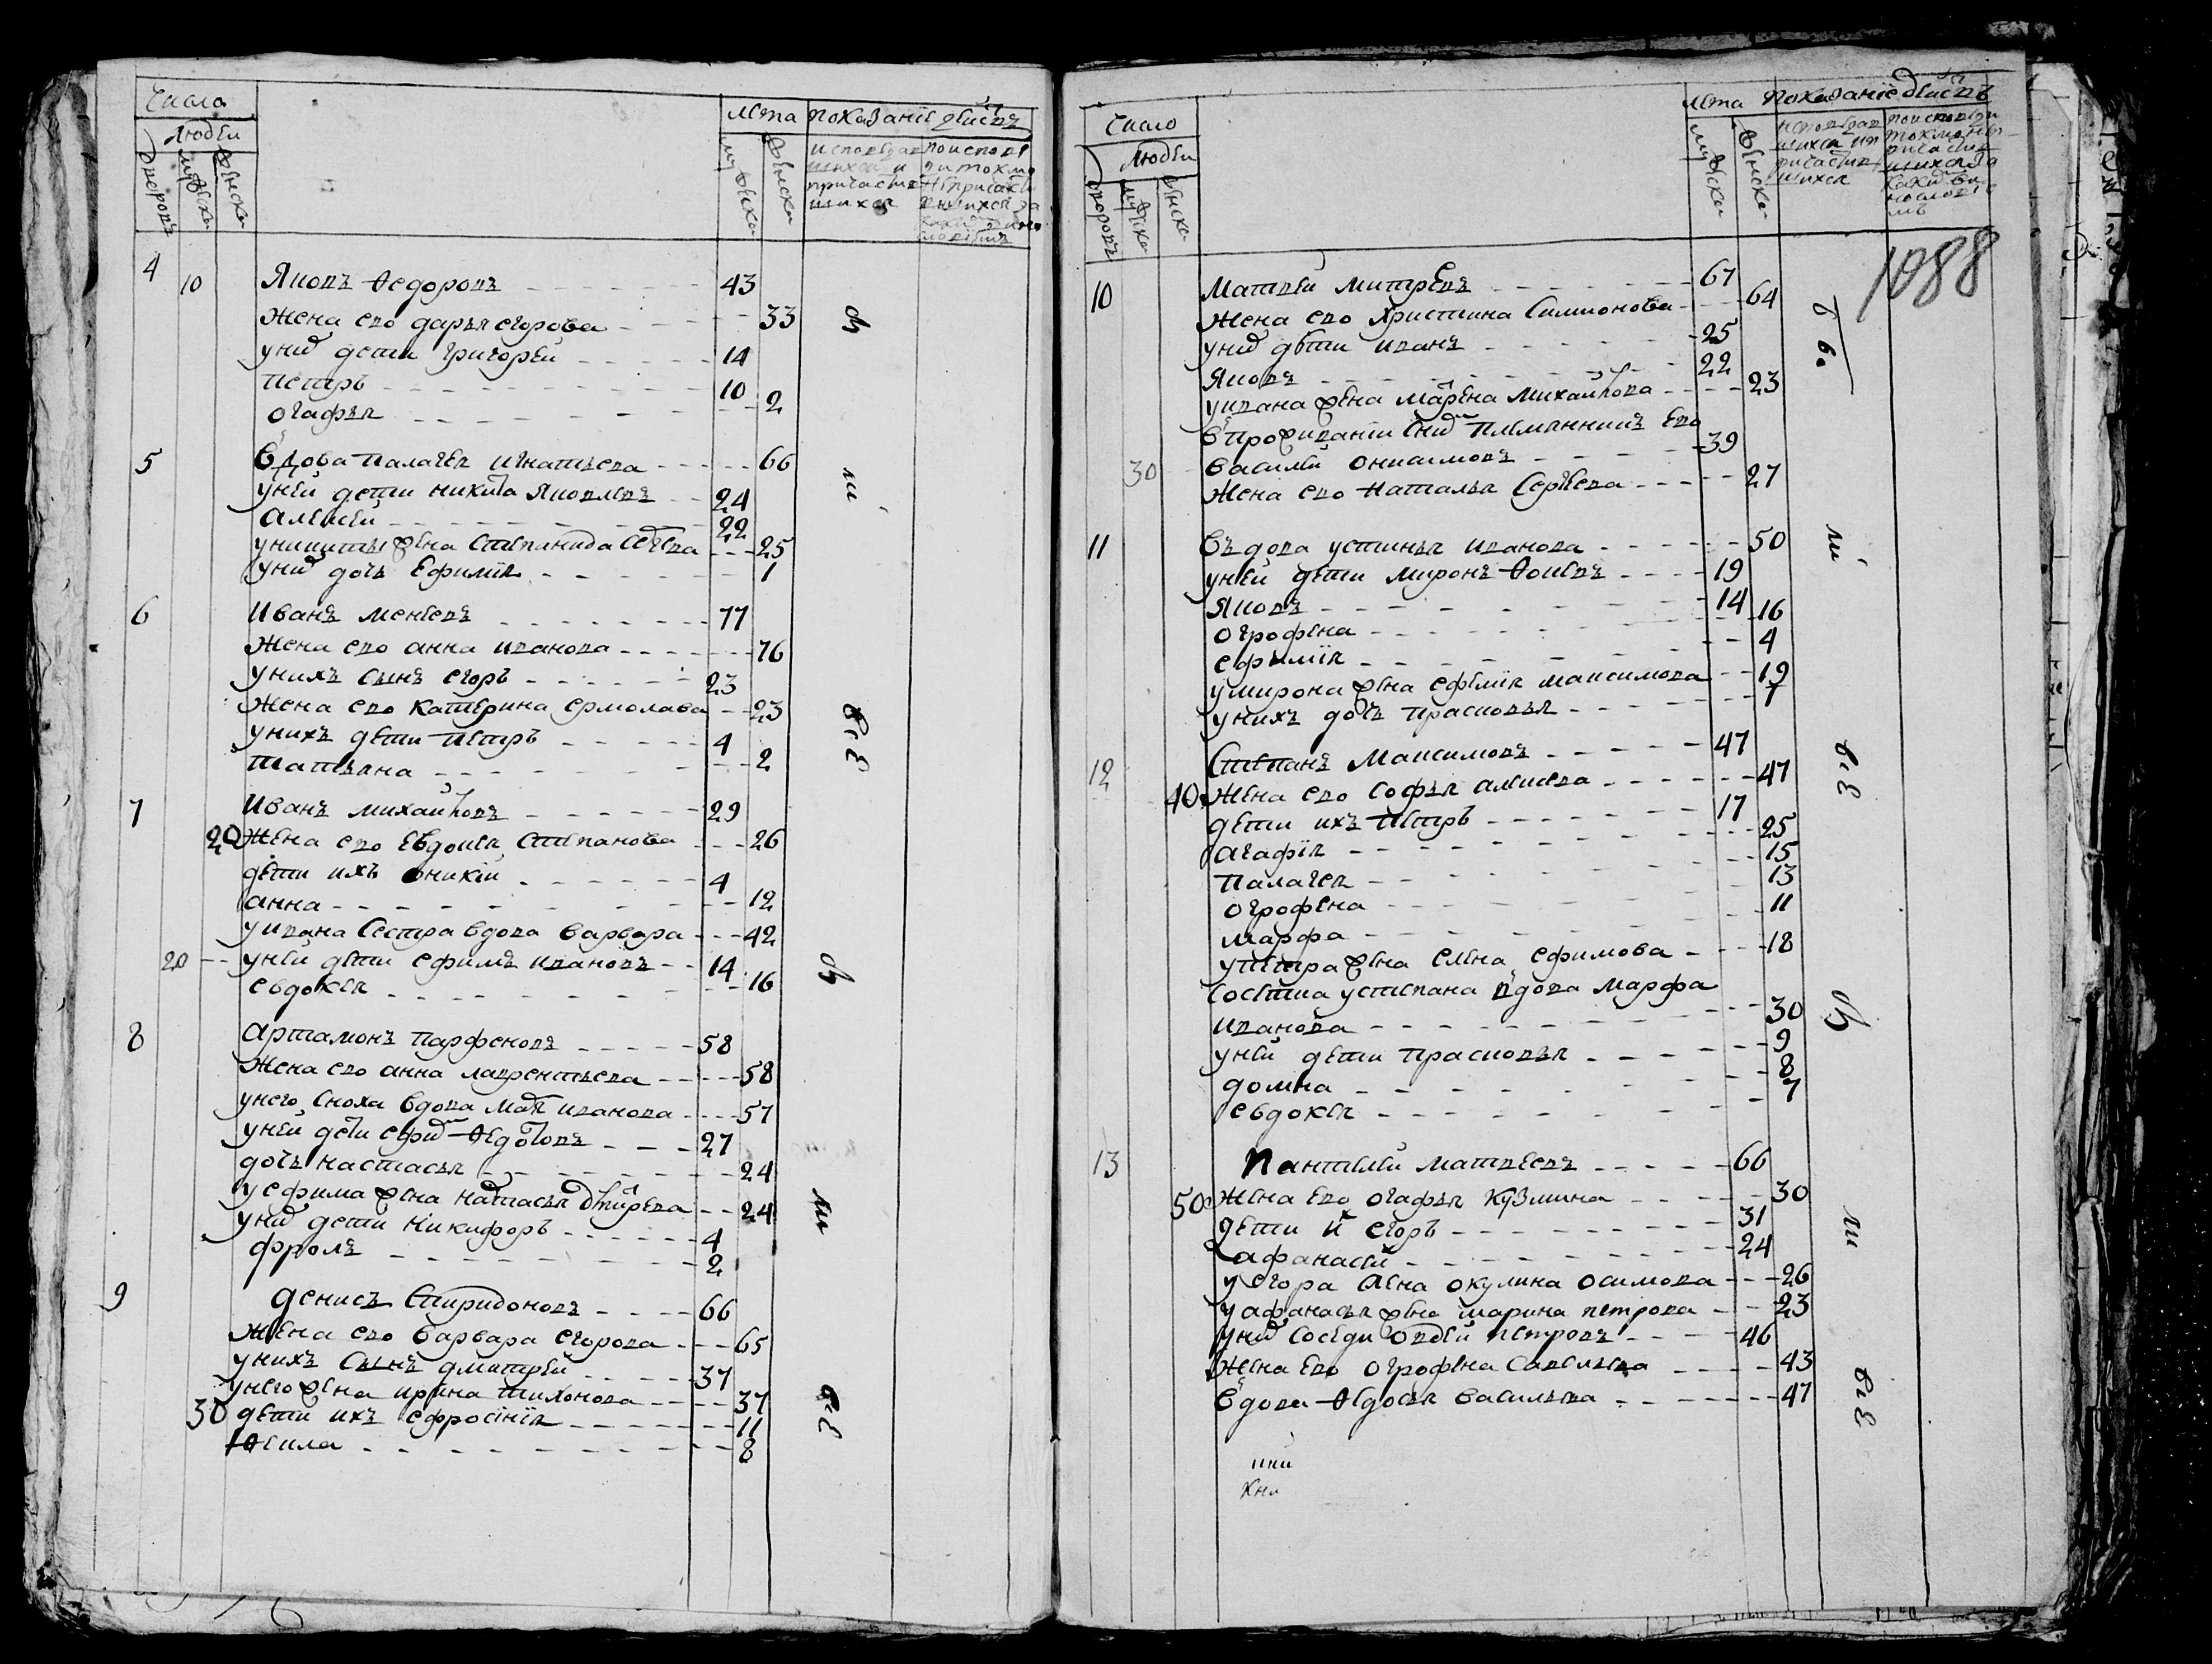 Число
Людей
дворовъ
мужеска
женска
Лета
мужеска
женска
показание действъ
исповедав
шихся и
причастив
шихся
по исповеди токмо
не причастившихся за
каким виномовствомъ
4 10 Яковъ Ѳедоровъ 43
Жена ево дарья егорова 33
у них дети григорей 14
петръ 10
огафья 2
5 Вдова палагея игнатьева 66
у ней дети никита Яковлевъ 24
алексей 22
у никиты жена степанида 25
у них дочь Ефимия 1
6 Иванъ 77
Жена ево анна иванова 76
у нихъ сынъ егоръ 23
Жена ево катерина ермолава 23
у нихъ дети петръ 4
татьяна 2
7 Иванъ михайловъ 29
20 Жена ево евдокея степанова 26
дети ихъ 4
анна 12
у ивана сестра вдова варвара 42
20 у ней дети ефимъ ивановъ 14
евдокея 16
8 артамонъ парфеновъ 58
Жена ево анна лаврентьева 58
у него сноха вдова иванова 57
у ней дети ефим Ѳедотовъ 27
дочь настасья 24
у ефима жена настасья дмитрева 24
у них дети никифоръ 4
фролъ 2
9 денисъ спиридоновъ 66
Жена ево варвара егорова 65
у нихъ сынъ дмитрей 37
у него жена ирина тихонова 37
30 дети ихъ ефросиния 11
Ѳекла 8
въ
ли
все
въ
ли
все
Число
Людей
дворовъ
мужеска
женска
Лета
мужеска
женска
Показание действъ
исповедав
шихся и п
ричастив
шихся
по исповеди
токмо не п
ричастив
шихся за
каким ви
номовство
мъ
1088
10 Матвей митревъ 67
Жена ево христина симионова 64
у них дети иванъ 25
Яковъ 22
у ивана жена марена михайлова 23
в проживании с ним племянникъ ево
30 василей онисимовъ 39
Жена ево наталья сергеева 27
11 въдова устинья иванова 50
у ней дети миронъ Ѳокевъ 19
Яковъ 14
огрофена 16
ефимия 4
у мирона жена ефимия максимова 19
у нихъ дочь прасковья 1
12 Степанъ Максимовъ 47
40 Жена ево софья алексева 47
дети ихъ петръ 17
агафия 25
палагея 15
огрофена 13
марфа 11
у петра жена елена ефимова 18
соседка у степана вдова марфа
иванова 30
у ней дети прасковья 9
домна 8
евдокея 7
13 пантелей матвеевъ 66
50 Жена ево огафья кузмина 30
дети их егоръ 31
афанасей 24
у егора жена окулина осипова 26
у афанасья жена марина петрова 23
у них соседи авдей петровъ 46
Жена ево огрофена савельева 43
Вдова Ѳедосья васильева 47
ли
все
въ
ли
все